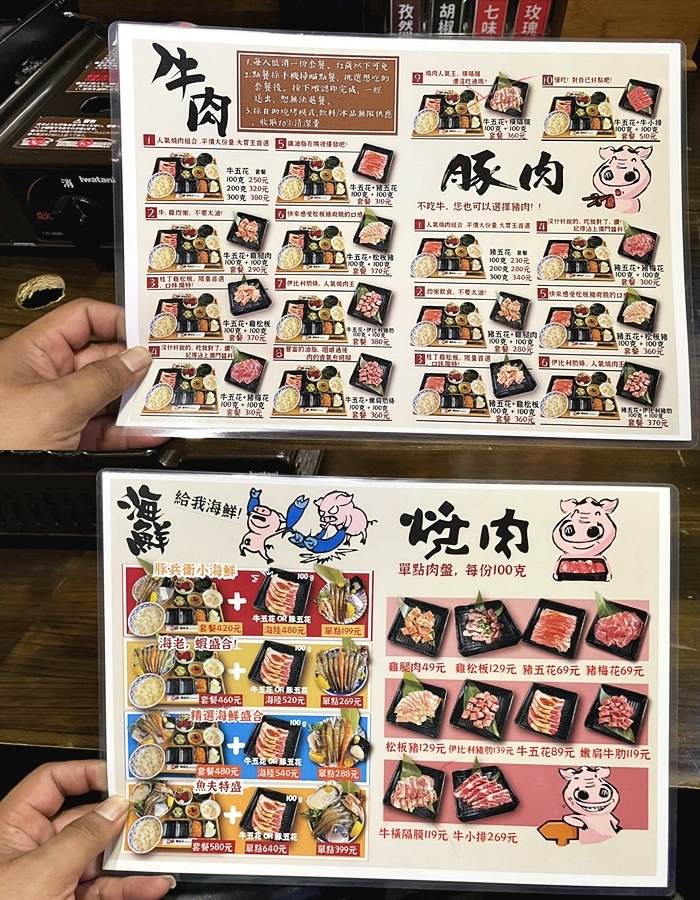 孜然
胡椒
七味
玫瑰
Iwatani
牛肉
1.每人低消一份套餐。12歲以下可免
2.點餐採手機掃瞄點餐，挑選想吃的
套餐後，按下確認即完成，一經
送出，恕無法退餐。
3.採自助燒烤模式，飲料/冰品無限供應
收取10%清潔費
1 人氣燒肉組合，平價大份量，大胃王首選
牛五花 套餐
100克 250元
200克 320元
300克 380元
2 牛、雞均衡，不要太油！
牛五花+雞腿肉
100克+100克
套餐 290元
3 桂丁雞松板，限量首選
口味獨特！
牛五花+雞松板
100克+100克
套餐 370元
4 沒什好說的，吃就對了，
記得沾上獨門醬料
牛五花+豬梅花
100克+100克
套餐 310元
5 讓油脂在嘴裡爆發吧！
牛五花+豬五花
100克+100克
套餐 310元
6 快來感受松板豬爽脆的口感
牛五花+松板豬
100克+100克
套餐 370元
7 伊比利豬肋條，人氣燒肉王
牛五花+伊比利豬肋
100克+100克
套餐 380元
8 豐富的油脂，咀嚼過後
肉的香氣愈明顯
牛五花+嫩肩肋條
100克+100克
套餐 360元
9 燒肉人氣王，橫隔膜
誰沒吃過嗎？
牛五花+橫隔膜
100克+100克
套餐 360元
10 懂吃！對自己好點吧！
牛五花+牛小排
100克+100克
套餐 510元
豚肉
不吃牛，您也可以選擇豬肉！！
1 人氣燒肉組合，平價大份量，大胃王首選
豬五花 套餐
100克 230元
200克 280元
300克 340元
2 均衡飲食，不要太油！
豬五花+雞腿肉
100克+100克
套餐 280元
3 桂丁雞松板，限量首選
口味獨特！
豬五花+雞松板
100克+100克
套餐 360元
4 沒什好說的，吃就對了，
記得沾上獨門醬料
豬五花+豬梅花
100克+100克
套餐 300元
5 快來感受松板豬爽脆的口
豬五花+松板豬
100克+100克
套餐 360元
6 伊比利肋條，人氣燒肉王
豬五花+伊比利豬肋
100克+100克
套餐 370元
海鮮
給我海鮮！
豚兵衛小海鮮
100g
牛五花 OR 豚五花
套餐420元
海陸480元
單點199元
海老，蝦盛合！
100g
牛五花 OR 豚五花
套餐460元
海陸520元
單點269元
精選海鮮盛合
100g
牛五花 OR 豚五花
套餐480元
海陸540元
單點288元
魚夫特盛
100g
牛五花 OR 豚五花
套餐580元
單點640元
單點399元
燒肉
單點肉盤，每份100克
雞腿肉49元
雞松板129元
豬五花69元
豬梅花69元
松板豬129元
伊比利豬肋139元
牛五花89元
嫩肩牛肋119元
牛橫隔膜119元
牛小排269元